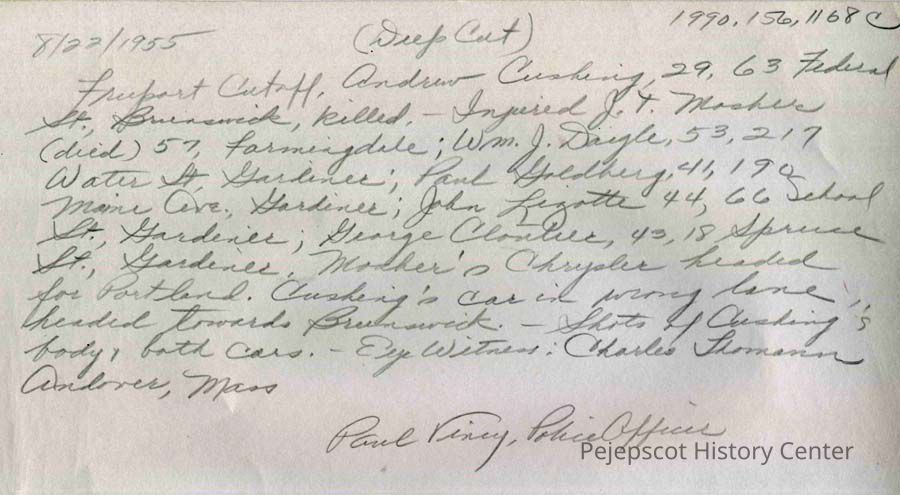 1990.156.1168 C
8/22/1955 (Deep Cut)
Freeport Cutoff, Andrew Cushing, 29, 63 Federal
St., Brunswick, killed. - Injured J. T. Mosher
(died) 57, Farmingdale; Wm. J. Daigle, 53, 217
Water St, Gardiner; Paul Goldberg, 41, 190
Maine Ave., Gardiner; John Lizotte 44, 66 School
St., Gardiner; George Cloutier, 43, 18 Spruce
St., Gardiner. Mosher's Chrysler headed
for Portland. Cushing's car in wrong lane,
headed towards Brunswick. - Shots of Cushing's
body, both cars. - Eye Witness: Charles Thomann
Andover, Mass
Paul Viney, Police Officer
Pejepscot History Center